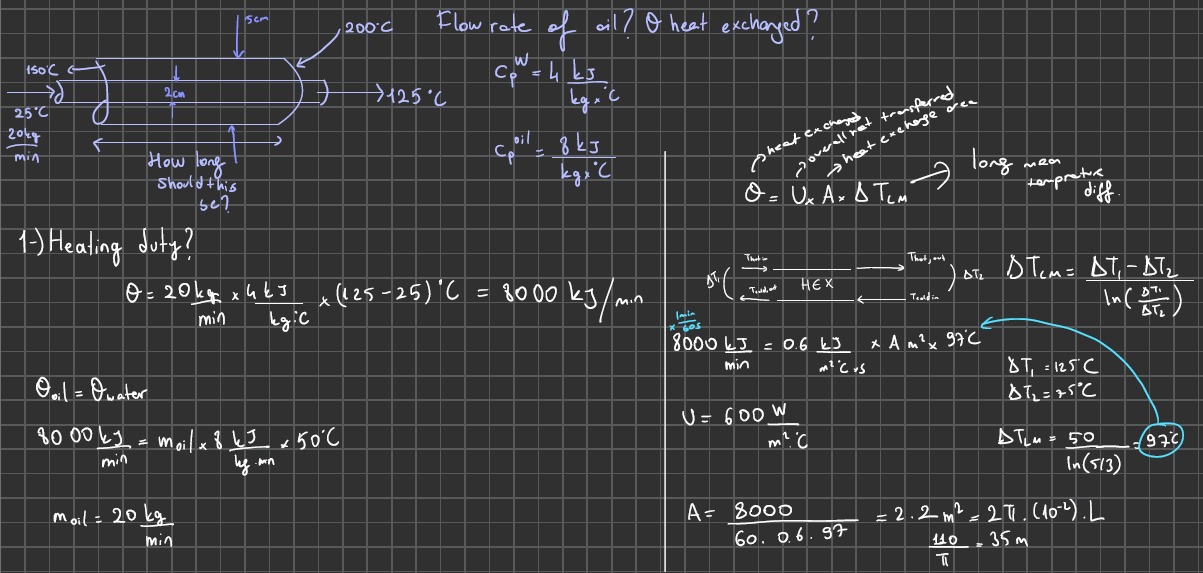 5cm
200°C
Flow rate of oil? Q heat exchanged?
150°C
2cm
125°C
25°C
20 kg/min
How long
should this
be?
Cp^W = 4 kJ/kg×°C
Cp^oil = 8 kJ/kg×°C
heat exchanged
overall heat transferred
heat exchange area
Q = U × A × ΔT_LM
long mean
temprature
diff.
1-) Heating duty?
Q = 20 kg/min × 4 kJ/kg°C × (125-25)°C = 8000 kJ/min
Q_oil = Q_water
8000 kJ/min = m_oil × 8 kJ/kg.mn × 50°C
m_oil = 20 kg/min
ΔT₁
Thot in
Thot,out
ΔT₂
HEX
Tcold,out
Tcold in
ΔT_LM = ΔT₁ - ΔT₂ / ln(ΔT₁/ΔT₂)
× 1min/60s
8000 kJ/min = 0.6 kJ/m²°C×s × A m² × 97°C
ΔT₁ = 125°C
ΔT₂ = 75°C
U = 600 W/m²°C
ΔT_LM = 50/ln(5/3) = 97°C
A = 8000/60.0.6.97 = 2.2 m² = 2π.(10⁻²).L
110/π = 35m